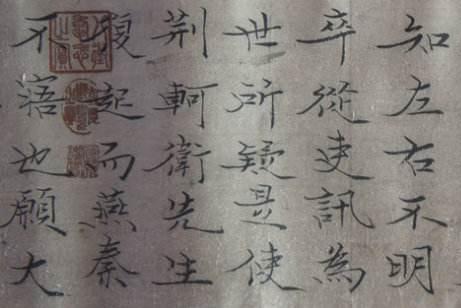 知左右不明
卒從吏訊為
世所疑是使
荆軻衛先生
復起而燕秦
不寤也願大